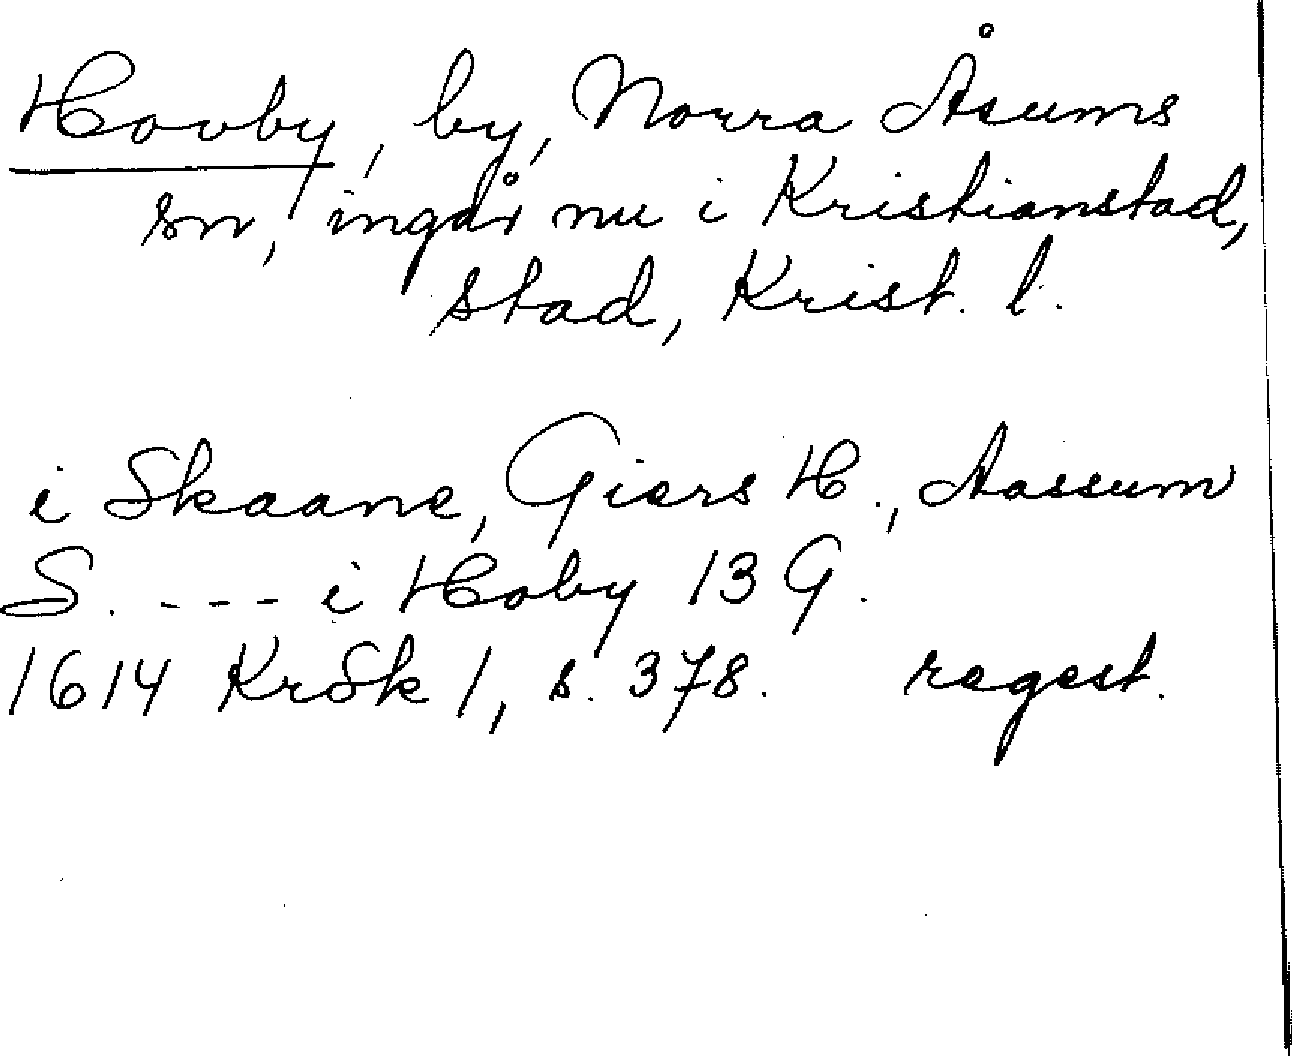 Hovby, by, Norra Åsums
sn, ingår nu i Kristianstad,
stad, Krist. l.
i Skaane, Giers H., Aassum
S. - - - - i Hoby 13 G.
1614 KrSk 1, s. 378. regest.